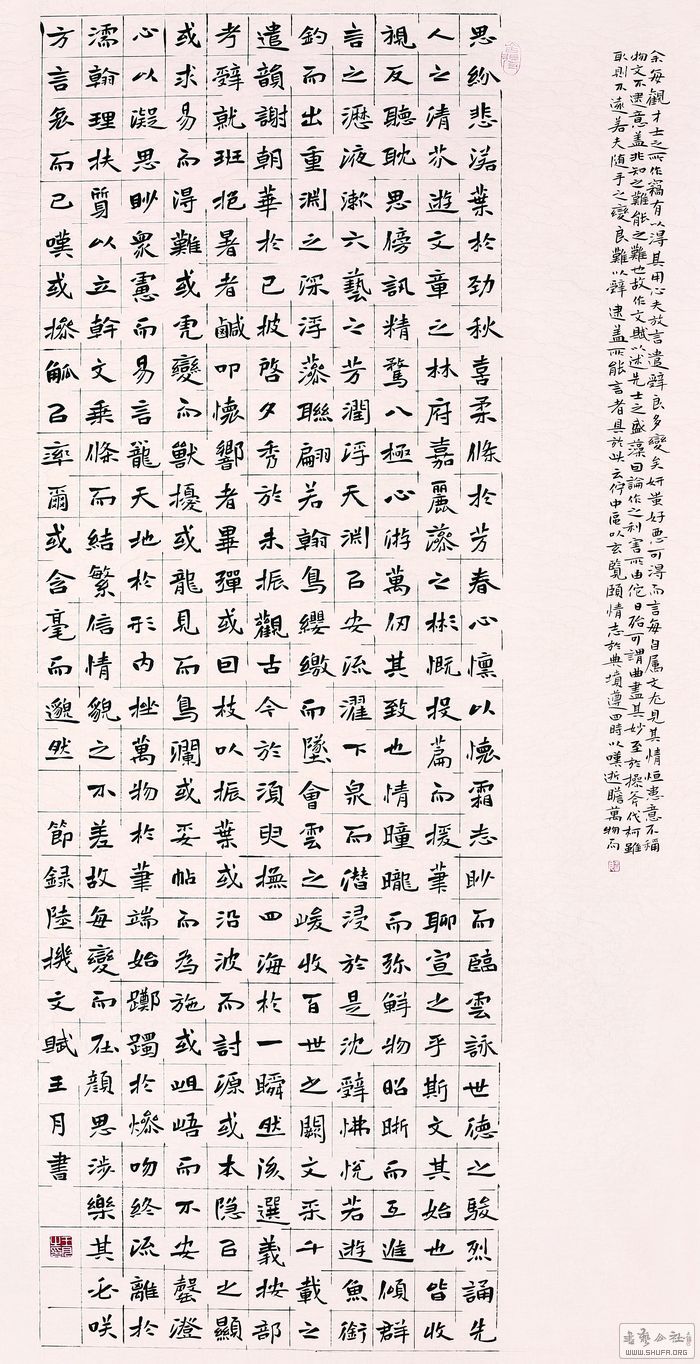 余每觀才士之所作竊有以得其用心夫放言遣辭良多變矣妍蚩好惡可得而言每自屬文尤見其情恒患意不稱
物文不逮意蓋非知之難能之難也故作文賦以述先士之盛藻因論作之利害所由佗日殆可謂曲盡其妙至於操斧伐柯雖
取則不遠若夫隨手之變良難以辭逮蓋所能言者具於此云佇中區以玄覽頤情志於典墳遵四時以嘆逝瞻萬物而
思紛悲落葉於勁秋喜柔條於芳春心懍以懷霜志眇而臨雲詠世德之駿烈誦先
人之清芬遊文章之林府嘉麗藻之彬慨投篇而援筆聊宣之乎斯文其始也皆收
視反聽耽思傍訊精騖八極心游萬仞其致也情曈曨而弥鮮物昭晰而互進傾群
言之瀝液漱六藝之芳潤浮天淵以安流濯下泉而潛浸於是沈辭怫悅若遊魚銜
鈎而出重淵之深浮藻聯翩若翰鳥纓繳而墜會雲之峻收百世之闕文采千載之
遺韻謝朝華於已披啓夕秀於未振觀古今於須臾撫四海於一瞬然後選義按部
考辭就班抱暑者鹹叩懷響者畢彈或因枝以振葉或沿波而討源或本隱以之顯
或求易而得難或虎變而獸擾或龍見而鳥瀾或妥帖而為施或岨峿而不安罄澄
心以凝思眇眾慮而易言龍天地於形內挫萬物於筆端始躑躅於燥吻終流離於
濡翰理扶質以立幹文垂條而結繁信情貌之不差故每變而在顏思涉樂其必咲
方言哀而已嘆或操觚以率爾或含毫而邈然 節録陸機文賦王月書
书艺公社
WWW.SHUFA.ORG